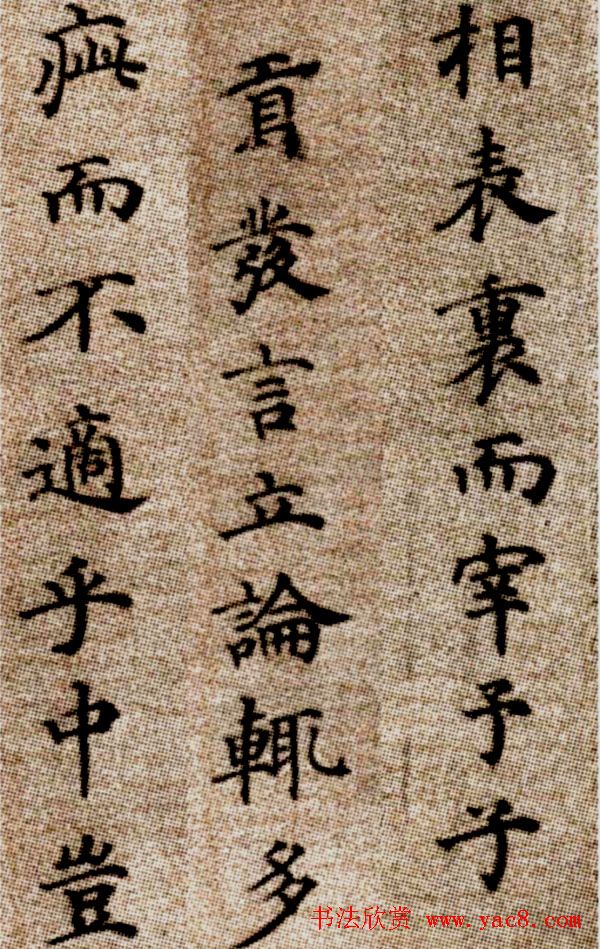 相表裏而宰予子
貢發言立論輒多
疵而不適乎中豈
书法欣赏 www.yac8.com